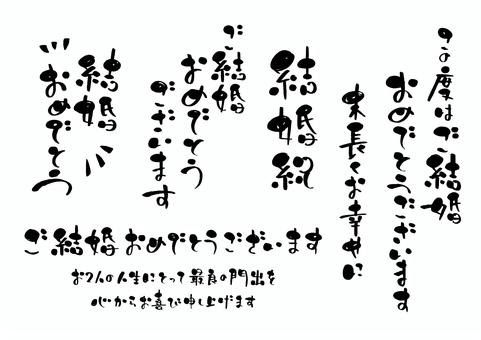 この度はご結婚
おめでとうございます
末長くお幸せに
結婚祝
ご結婚
おめでとう
ございます
結婚
おめでとう
ご結婚おめでとうございます
お2人の人生にとって最良の門出を
心からお喜び申し上げます